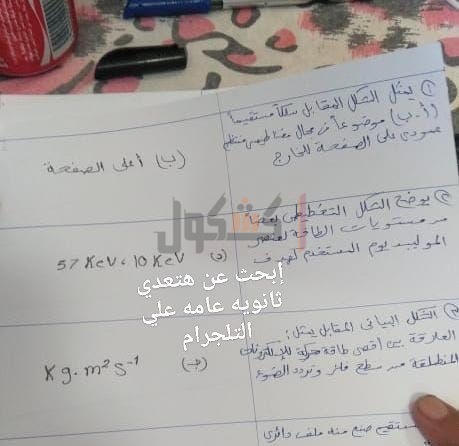 ① يمثل الشكل المقابل سلكاً مستقيماً
(أ ب) موضوعاً في مجال مغناطيسي منتظم
عمودي على الصفحة للخارج
(ب) أعلى الصفحة
② يوضح الشكل التخطيطي بعضا
من مستويات الطاقة لعنصر
الموليبدنيوم المستخدم كهدف
(د) 57 KeV ، 10 KeV
③ الشكل البياني المقابل يمثل:
العلاقة بين أقصى طاقة حركة للإلكترونات
المنطلقة من سطح فلز وتردد الضوء
(ج) Kg.m²s⁻¹
مستقيم صنع منه ملف دائري
كشكول
إبحث عن هتعدي
ثانويه عامه علي
التلجرام